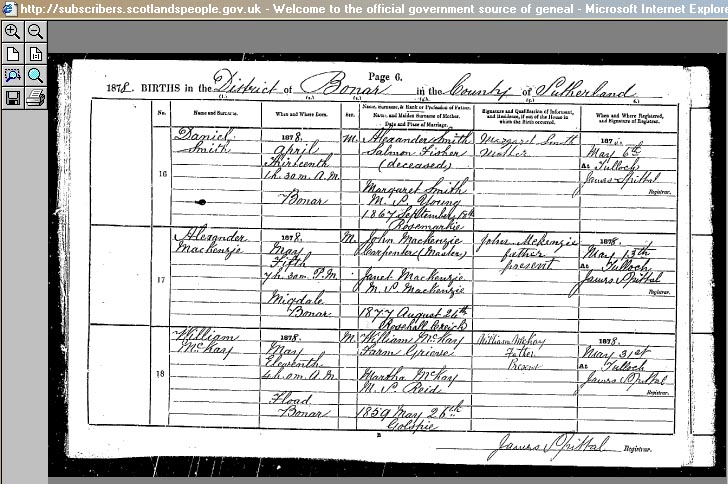 http://subscribers.scotlandspeople.gov.uk - Welcome to the official government source of geneal - Microsoft Internet Explore
Page 6.
1878. BIRTHS in the District of Bonar in the County of Sutherland
No.
Name and Surname.
When and Where Born.
Sex.
Name, Surname, & Rank or Profession of Father.
Name, and Maiden Surname of Mother.
Date and Place of Marriage.
Signature and Qualification of Informant, and Residence, if out of the House in which the Birth occurred.
When and Where Registered, and Signature of Registrar.
16
Daniel
Smith
1878.
April
Thirteenth
1h. 30m. A.M.
Bonar
M.
Alexander Smith
Salmon Fisher
(deceased)
Margaret Smith
M. S. Young
1867 September 18th
Rosemarkie
Margaret Smith
Mother
187
May 6th
At Tulloch
James Spittal
Registrar.
17
Alexander
Mackenzie
1878.
May
Fifth
7h. 30m. P.M.
Migdale
Bonar
M.
John Mackenzie
Carpenter (Master)
Janet Mackenzie
M. S. Mackenzie
1877 August 24th
Rosehall Creich
John McKenzie
father
present
1878.
May 13th
At Tulloch
James Spittal
Registrar.
18
William
McKay
1878.
May
Eleventh
4h. 0m. A.M.
Bonar
M.
William McKay
Farm Grieve
Martha McKay
M. S. Reid
1859 May 26th
Golspie
William McKay
Father
Present
1878.
May 31st
At Tulloch
James Spittal
Registrar.
James Spittal Registrar.